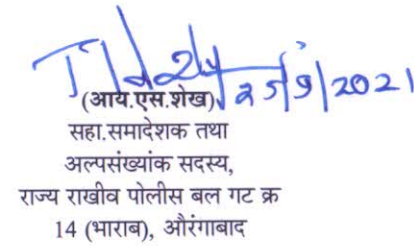 25/9/2021
(आय.एस.शेख)
सहा.समादेशक तथा
अल्पसंख्यांक सदस्य,
राज्य राखीव पोलीस बल गट क्र
14 (भाराब), औरंगाबाद